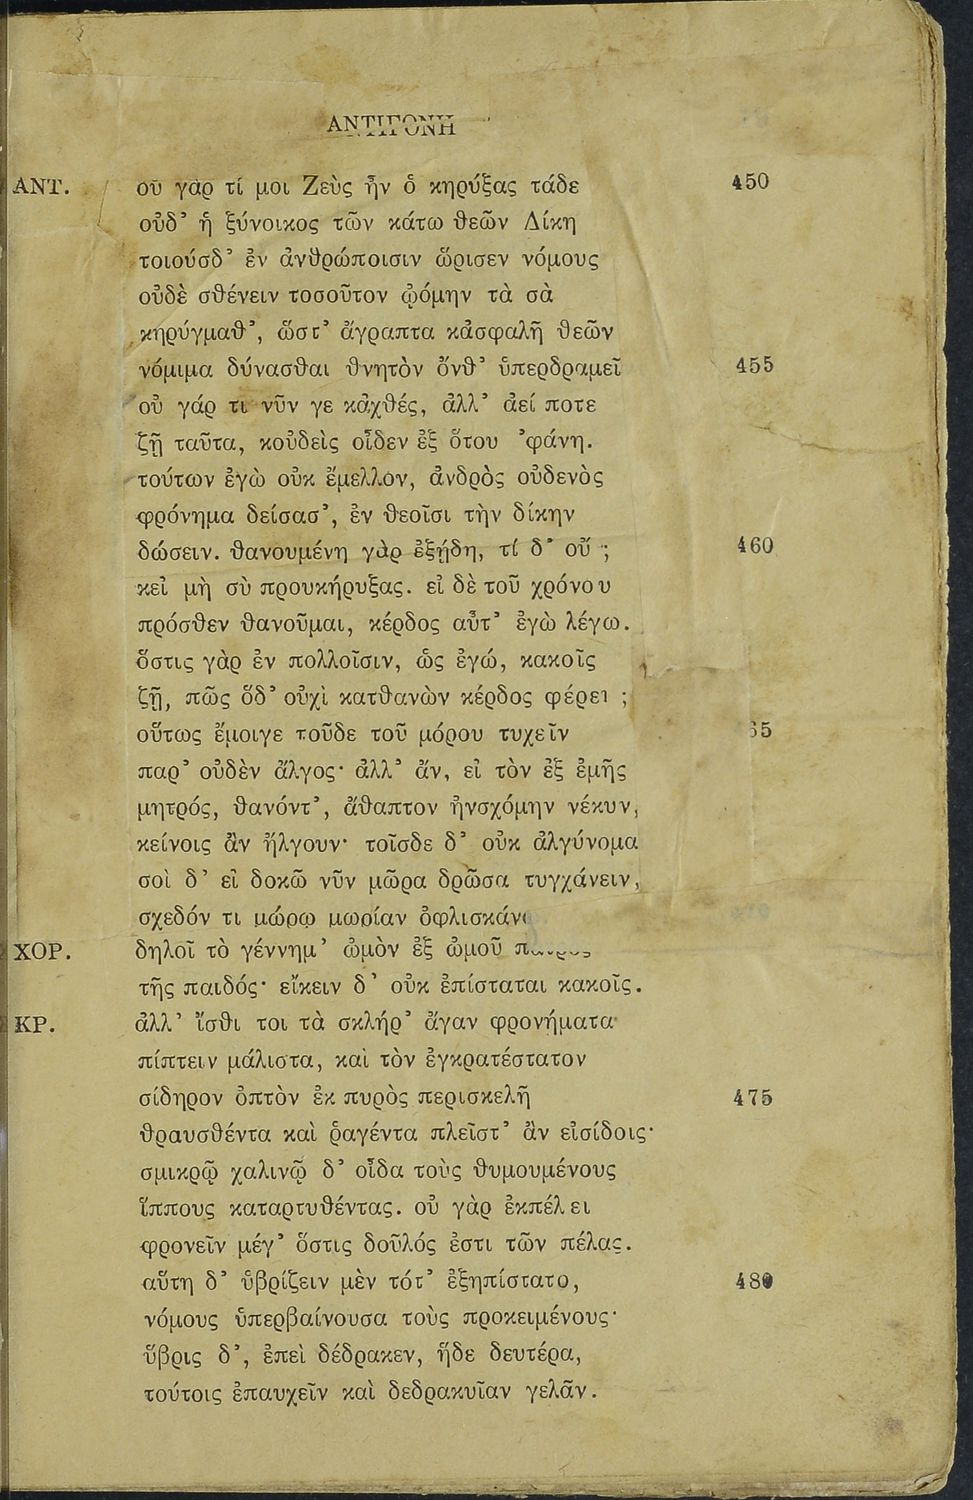 ΑΝΤΙΓΟΝΗ
ΑΝΤ. οὐ γάρ τί μοι Ζεὺς ἦν ὁ κηρύξας τάδε 450
οὐδ’ ἡ ξύνοικος τῶν κάτω θεῶν Δίκη
τοιούσδ’ ἐν ἀνθρώποισιν ὥρισεν νόμους
οὐδὲ σθένειν τοσοῦτον ᾠόμην τὰ σὰ
κηρύγμαθ’, ὥστ’ ἄγραπτα κἀσφαλῆ θεῶν
νόμιμα δύνασθαι θνητὸν ὄνθ’ ὑπερδραμεῖ 455
οὐ γάρ τι νῦν γε κἀχθές, ἀλλ’ ἀεί ποτε
ζῇ ταῦτα, κοὐδεὶς οἶδεν ἐξ ὅτου ’φάνη.
τούτων ἐγὼ οὐκ ἔμελλον, ἀνδρὸς οὐδενὸς
φρόνημα δείσασ’, ἐν θεοῖσι τὴν δίκην
δώσειν. θανουμένη γὰρ ἐξῄδη, τί δ’ οὔ ; 460
κεἰ μὴ σὺ προυκήρυξας. εἰ δὲ τοῦ χρόνου
πρόσθεν θανοῦμαι, κέρδος αὔτ’ ἐγὼ λέγω.
ὅστις γὰρ ἐν πολλοῖσιν, ὡς ἐγώ, κακοῖς
ζῇ, πῶς ὅδ’ οὐχὶ κατθανὼν κέρδος φέρει ;
οὕτως ἔμοιγε τοῦδε τοῦ μόρου τυχεῖν 65
παρ’ οὐδὲν ἄλγος· ἀλλ’ ἄν, εἰ τὸν ἐξ ἐμῆς
μητρός, θανόντ’, ἄθαπτον ἠνσχόμην νέκυν,
κείνοις ἂν ἤλγουν· τοῖσδε δ’ οὐκ ἀλγύνομα
σοὶ δ’ εἰ δοκῶ νῦν μῶρα δρῶσα τυγχάνειν,
σχεδόν τι μώρῳ μωρίαν ὀφλισκάν
ΧΟΡ. δηλοῖ τὸ γέννημ’ ὠμὸν ἐξ ὠμοῦ
τῆς παιδός· εἴκειν δ’ οὐκ ἐπίσταται κακοῖς.
ΚΡ. ἀλλ’ ἴσθι τοι τὰ σκλήρ’ ἄγαν φρονήματα
πίπτειν μάλιστα, καὶ τὸν ἐγκρατέστατον
σίδηρον ὀπτὸν ἐκ πυρὸς περισκελῆ 475
θραυσθέντα καὶ ῥαγέντα πλεῖστ’ ἂν εἰσίδοις·
σμικρῷ χαλινῷ δ’ οἶδα τοὺς θυμουμένους
ἵππους καταρτυθέντας. οὐ γὰρ ἐκπέλει
φρονεῖν μέγ’ ὅστις δοῦλός ἐστι τῶν πέλας.
αὕτη δ’ ὑβρίζειν μὲν τότ’ ἐξηπίστατο, 480
νόμους ὑπερβαίνουσα τοὺς προκειμένους·
ὕβρις δ’, ἐπεὶ δέδρακεν, ἥδε δευτέρα,
τούτοις ἐπαυχεῖν καὶ δεδρακυῖαν γελᾶν.